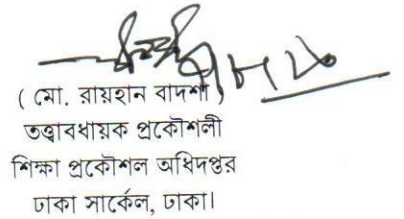 ( মো. রায়হান বাদশা )
তত্ত্বাবধায়ক প্রকৌশলী
শিক্ষা প্রকৌশল অধিদপ্তর
ঢাকা সার্কেল, ঢাকা।